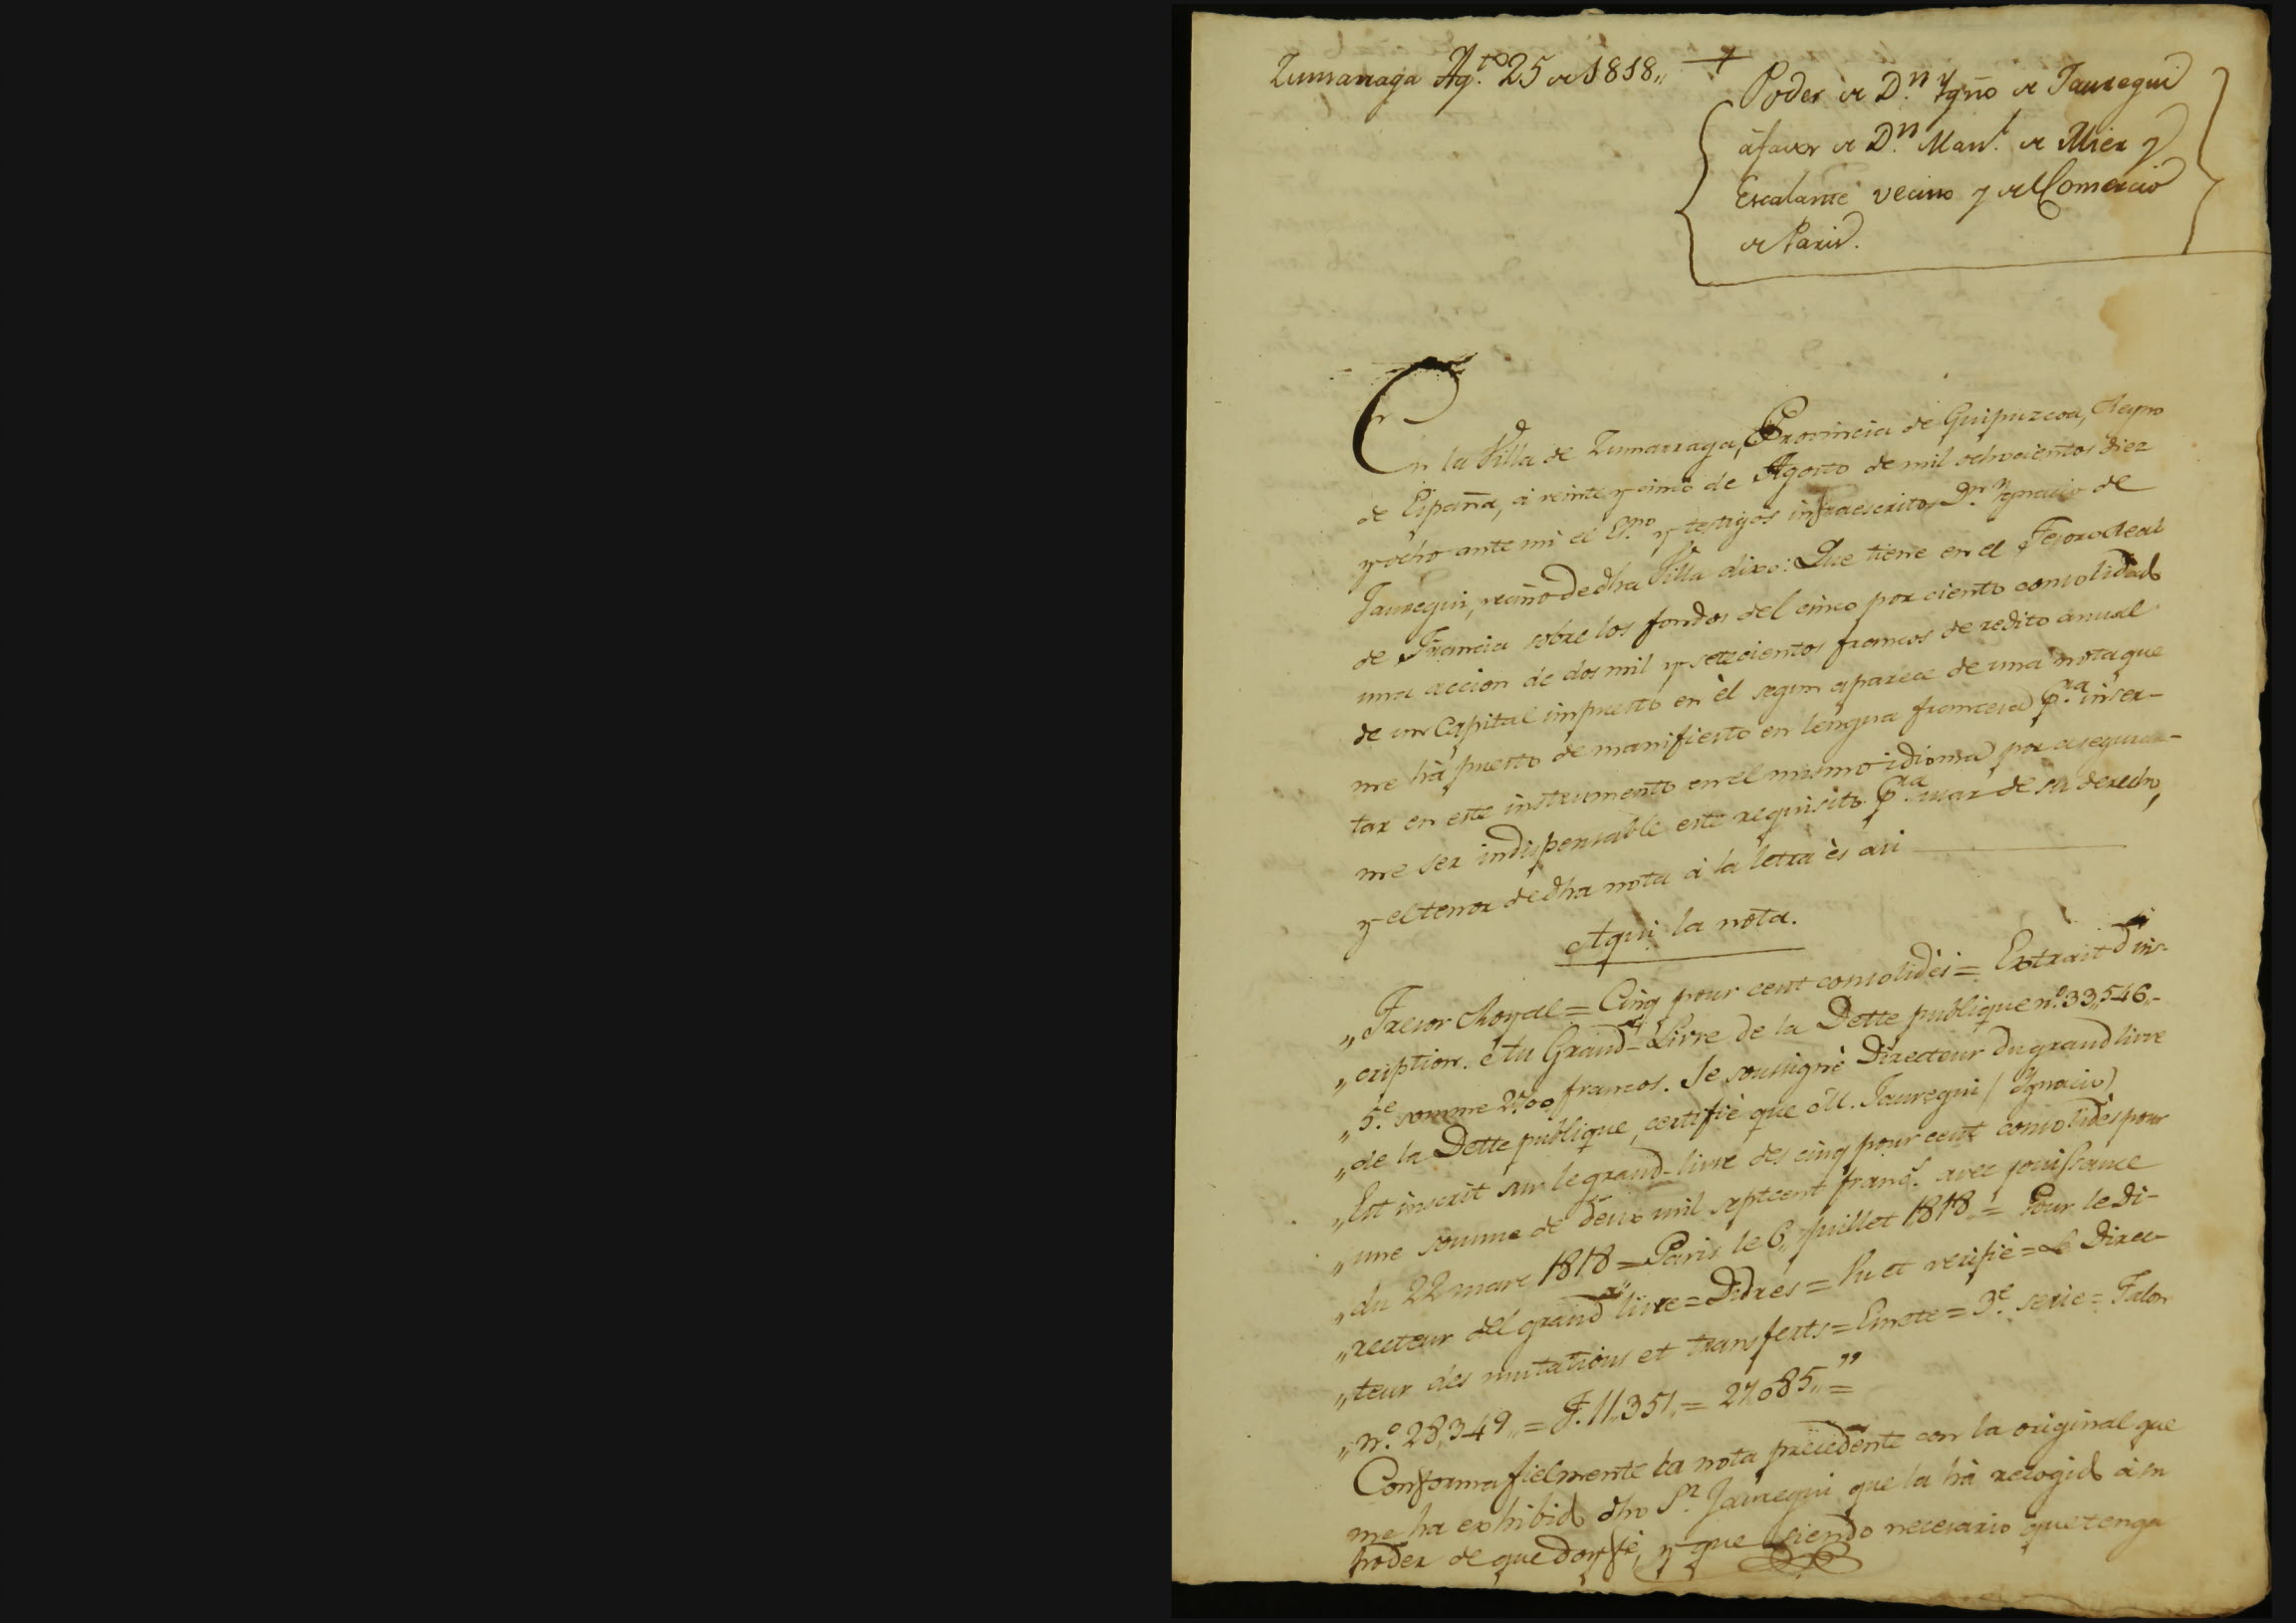 Zumarraga Ag.to 25 de 1818,, +
Poder de D.n Ygno de Jauregui
à favor de D.n Man.l de Mier y
Escalante vecino y del Comercio
de Paris.
En la Villa de Zumarraga, Provincia de Guipuzcoa, Reyno
de España, à veinte y cinco de Agosto de mil ochocientos diez
y ocho ante mi el Es.no y testigos infraescritos D.n Ygnacio de
Jauregui, vecino de dha Villa dixo: Que tiene en el Tesoro Real
de Francia sobre los fondos del cinco por ciento consolidado
una accion de dos mil y setecientos francos de redito anual
de un Capital impuesto en èl segun aparece de una nota que
me hà puesto de manifiesto en lengua francesa p.ra inser-
tar en este instrumento en el mismo idioma por asegurar-
me ser indispensable este requisito p.ra usar de su derecho,
y el tenor de dha nota à la letra ès asi
Aqui la nota.
,, Tresor Royal = Cinq pour cent consolidès = Extrait d'ins-
,, cription. è tu Grand-Livre de la Dette publique nº. 33,,546,,-
,, 5.e somme 2700 francos. Je soussignè Directeur du grand livre
,, de la Dette publique, certifiè que M. Jauregui / Ygnacio)
,, Est inscrit sur le grand-livre des cinq pour cent consolidès pour
,, une somme de deux mil septcent franc.s avec jouissance
,, du 22 mars 1818 = Paris le 6,, juillet 1818 = Pour le Di-
,, recteur del grand livre = Didres = Vu et verifiè = Le Direc-
,, teur des mutations et transferts = Emete = 3.e serie = Talon
,, nº. 28,349,, = J. 11,,351,, = 27085,, = ,,
Conforma fielmente la nota precedente con la original que
me ha exhibido dho S.r Jauregui que la hà recogido à su
poder de que doy fè, y que siendo necesario que tenga